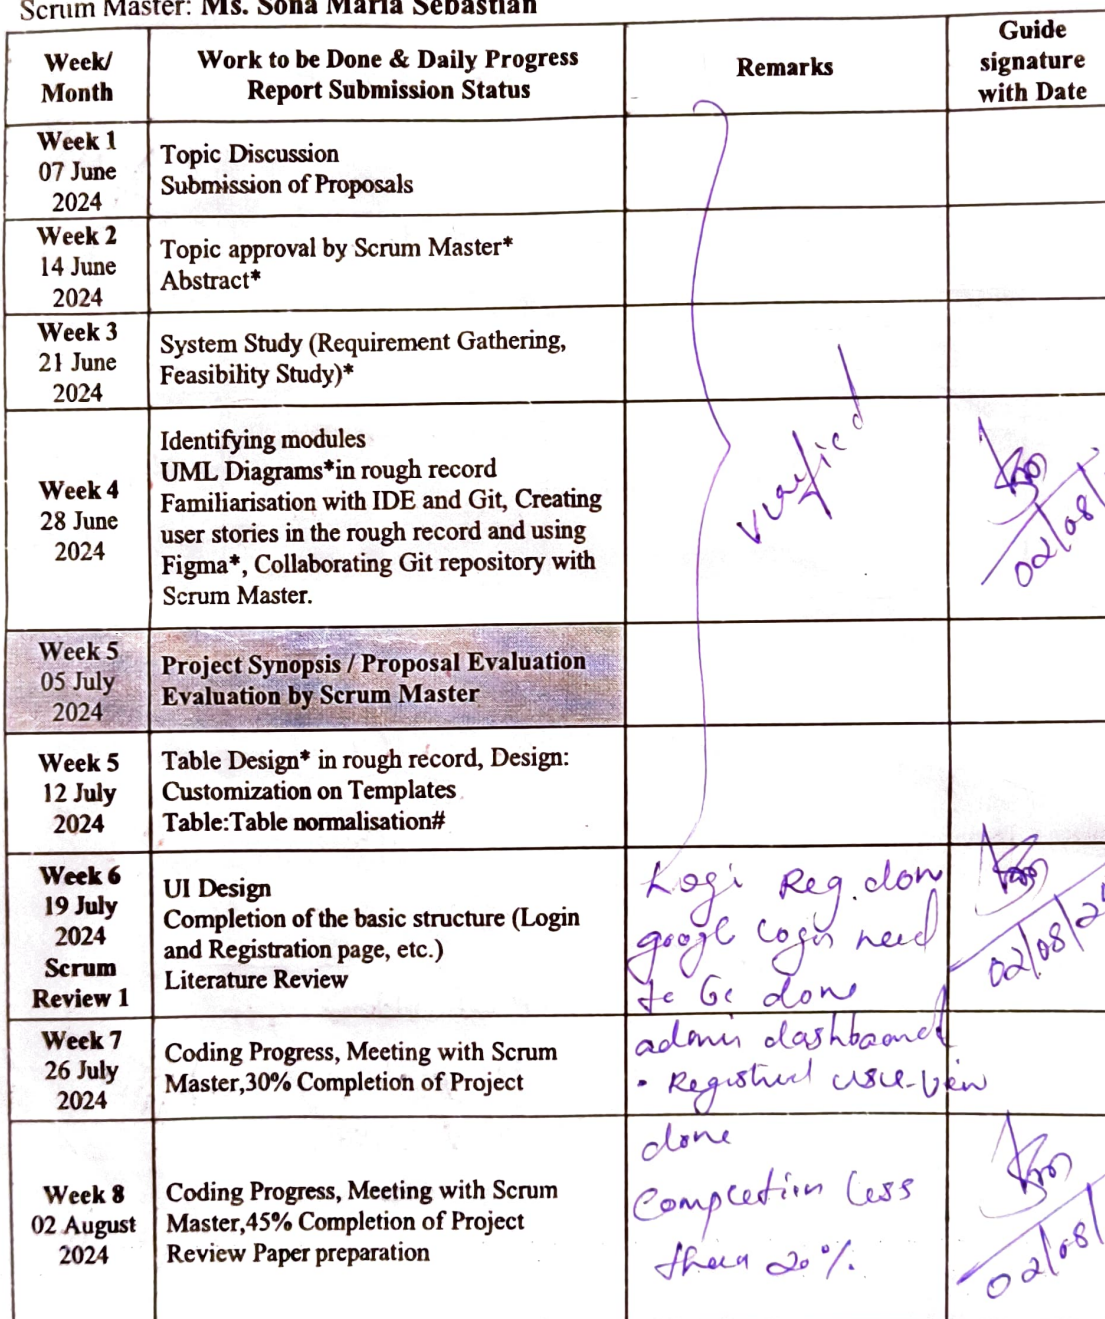 Scrum Master: Ms. Sona Maria Sebastian
Week/
Month
Work to be Done & Daily Progress
Report Submission Status
Remarks
Guide
signature
with Date
Week 1
07 June
2024
Topic Discussion
Submission of Proposals
Week 2
14 June
2024
Topic approval by Scrum Master*
Abstract*
Week 3
21 June
2024
System Study (Requirement Gathering,
Feasibility Study)*
Week 4
28 June
2024
Identifying modules
UML Diagrams*in rough record
Familiarisation with IDE and Git, Creating
user stories in the rough record and using
Figma*, Collaborating Git repository with
Scrum Master.
verified
02/08/
Week 5
05 July
2024
Project Synopsis / Proposal Evaluation
Evaluation by Scrum Master
Week 5
12 July
2024
Table Design* in rough record, Design:
Customization on Templates
Table:Table normalisation#
Week 6
19 July
2024
Scrum
Review 1
UI Design
Completion of the basic structure (Login
and Registration page, etc.)
Literature Review
Logi Reg. don
googl login need
to be done
02/08/2
Week 7
26 July
2024
Coding Progress, Meeting with Scrum
Master,30% Completion of Project
admin dashboard
• Registred user-view
done
Week 8
02 August
2024
Coding Progress, Meeting with Scrum
Master,45% Completion of Project
Review Paper preparation
Completion less
than 20%.
02/08/